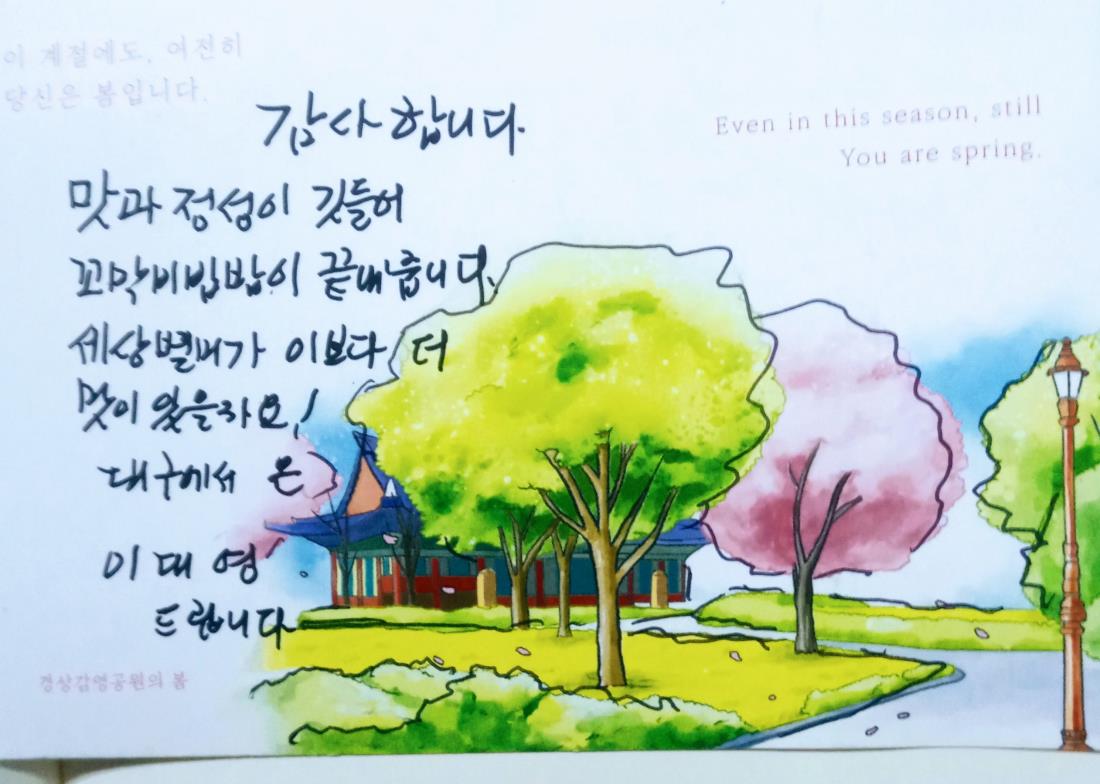 이 계절에도, 여전히
당신은 봄입니다.
Even in this season, still
You are spring.
감사합니다.
맛과 정성이 깃들어
꼬막비빔밥이 끝내줍니다.
세상별미가 이보다 더
맛이 있을까요!
대구에서 온
이대영
드립니다
경상감영공원의 봄